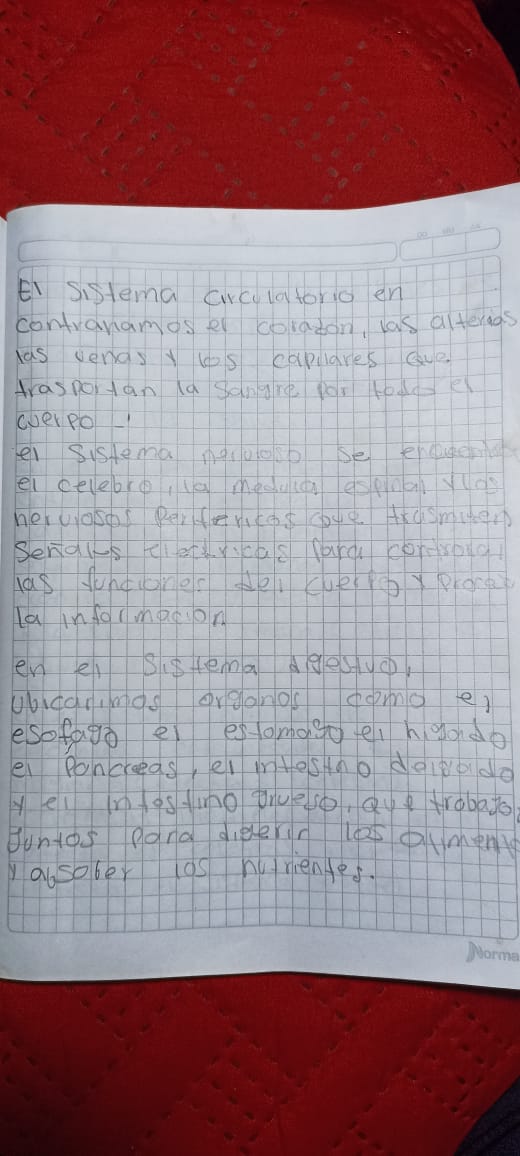 El sistema circulatorio en
contranamos el corazon, las alterias
las venas y los capilares que
trasportan la sangre por todo el
cuerpo
el sistema nervioso se encuentra
el celebro, la medula espinal y las
nerviosos perifericas que trasmiten
señales electricas para controlar
las funciones del cuerpo y procesa
la informacion
en el sistema digestivo,
ubicarimos organos como el
esofago el estomago el higado
el Pancreas, el intestino delgado
y el intestino grueso, que trabajo
juntos para digerir los aliment
y absober los nutrientes.
Norma